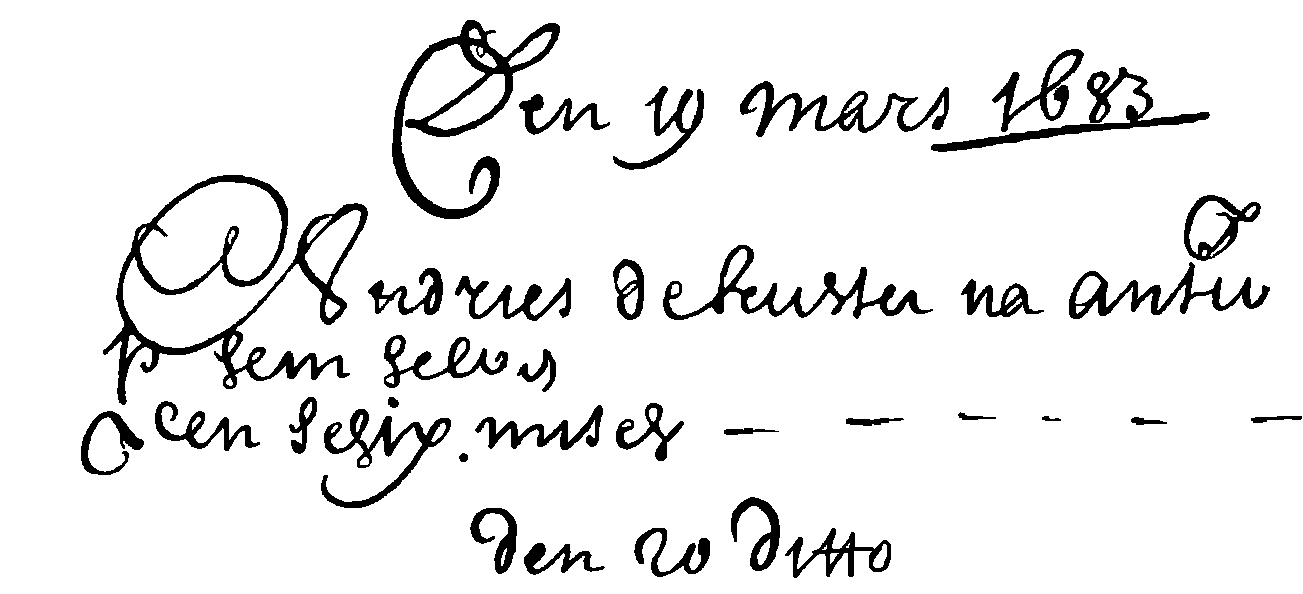 Den 19 mars 1683
Andries de beuster na antw
p hem selven
een schip. mosch
den 20 ditto